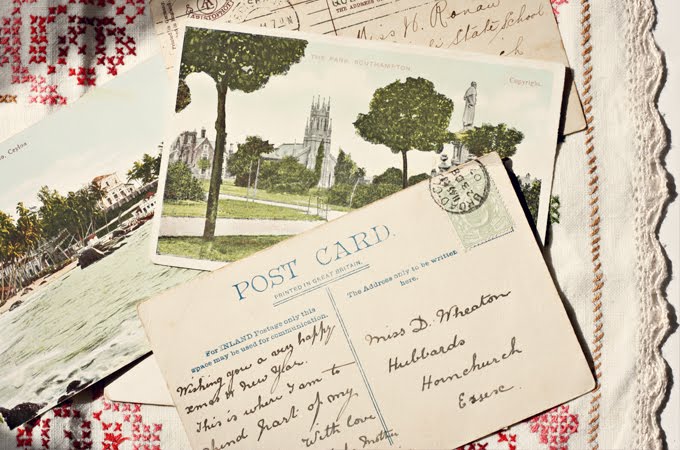 Miss N. Ronan
State School
THE PARK SOUTHAMPTON.
Copyright.
Ceylon
POST CARD.
PRINTED IN GREAT BRITAIN.
For INLAND Postage only this
space may be used for communication.
The Address only to be written
here.
Wishing you a very happy
xmas & New Year.
This is where I am to
spend part of my
With love
Mother
Miss D. Wheaton
Hubbards
Hornchurch
Essex.